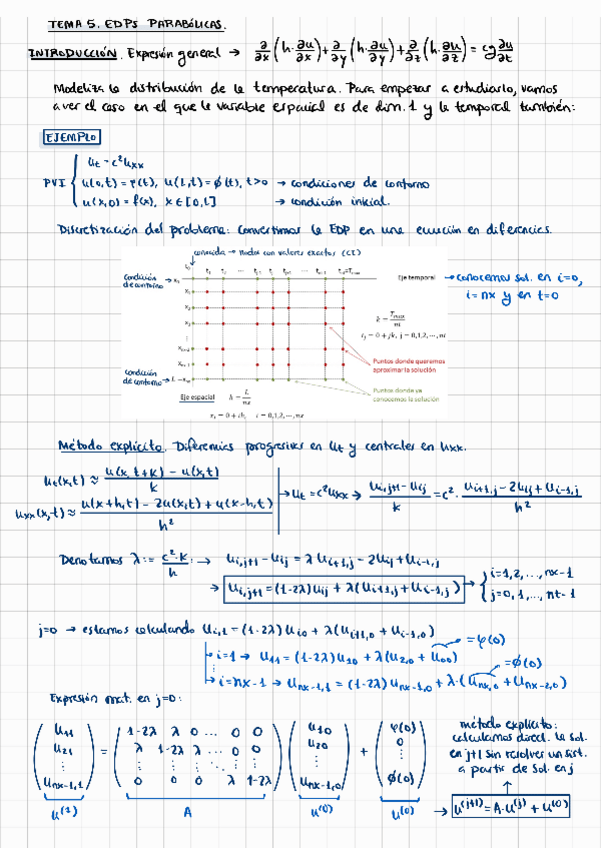 TEMA 5. EDPs PARABÓLICAS.
INTRODUCCIÓN. Expresión general → ∂/∂x (h·∂u/∂x) + ∂/∂y (h·∂u/∂y) + ∂/∂z (h·∂u/∂z) = cρ ∂u/∂t
Modeliza la distribución de la temperatura. Para empezar a estudiarlo, vamos
a ver el caso en el que la variable espacial es de dim. 1 y la temporal también:
EJEMPLO
PVI { ut = c²uxx
u(0,t) = φ(t), u(L,t) = ϕ(t), t>0 → condiciones de contorno
u(x,0) = f(x), x∈[0,L] → condición inicial.
Discretización del problema: convertimos la EDP en una ecuación en diferencias.
conocida → nodos con valores exactos (CI)
Condición de contorno
Eje temporal → conocemos sol. en i=0,
i=nx y en t=0
k = Tmax/nt
tj = 0 + jk, j = 0,1,2,···,nt
Puntos donde queremos
aproximar la solución
Condición de contorno
Puntos donde ya
conocemos la solución
Eje espacial h = L/nx
xi = 0 + ih, i = 0,1,2,···,nx
Método explícito. Diferencias progresivas en ut y centrales en uxx.
ut(x,t) ≈ (u(x,t+k) - u(x,t))/k
uxx(x,t) ≈ (u(x+h,t) - 2u(x,t) + u(x-h,t))/h²
→ ut = c²uxx → (ui,j+1 - uij)/k = c²·(ui+1,j - 2uij + ui-1,j)/h²
Denotamos λ := c²·k/h → ui,j+1 - uij = λui+1,j - 2uij + ui-1,j
→ ui,j+1 = (1-2λ)uij + λ(ui+1,j + ui-1,j) → { i=1,2,...,nx-1
j=0,1,...,nt-1
j=0 → estamos calculando ui,1 = (1-2λ)ui0 + λ(ui+1,0 + ui-1,0)
=φ(0)
→ i=1 → u11 = (1-2λ)u10 + λ(u2,0 + u00)
=ϕ(0)
→ i=nx-1 → unx-1,1 = (1-2λ)unx-1,0 + λ·(unx,0 + unx-2,0)
Expresión mat. en j=0:
(u11 u21 ⋮ unx-1,1) = (1-2λ λ 0 ... 0 0
λ 1-2λ λ ... 0 0
⋮
0 0 0 λ 1-2λ) (u10 u20 ⋮ unx-1,0) + (φ(0) 0 ⋮ ϕ(0))
u(1) A u(0) u(0)
método explícito:
calculamos direct. la sol.
en j+1 sin resolver un sist.
a partir de sol. en j
→ u(j+1) = A·u(j) + u(0)